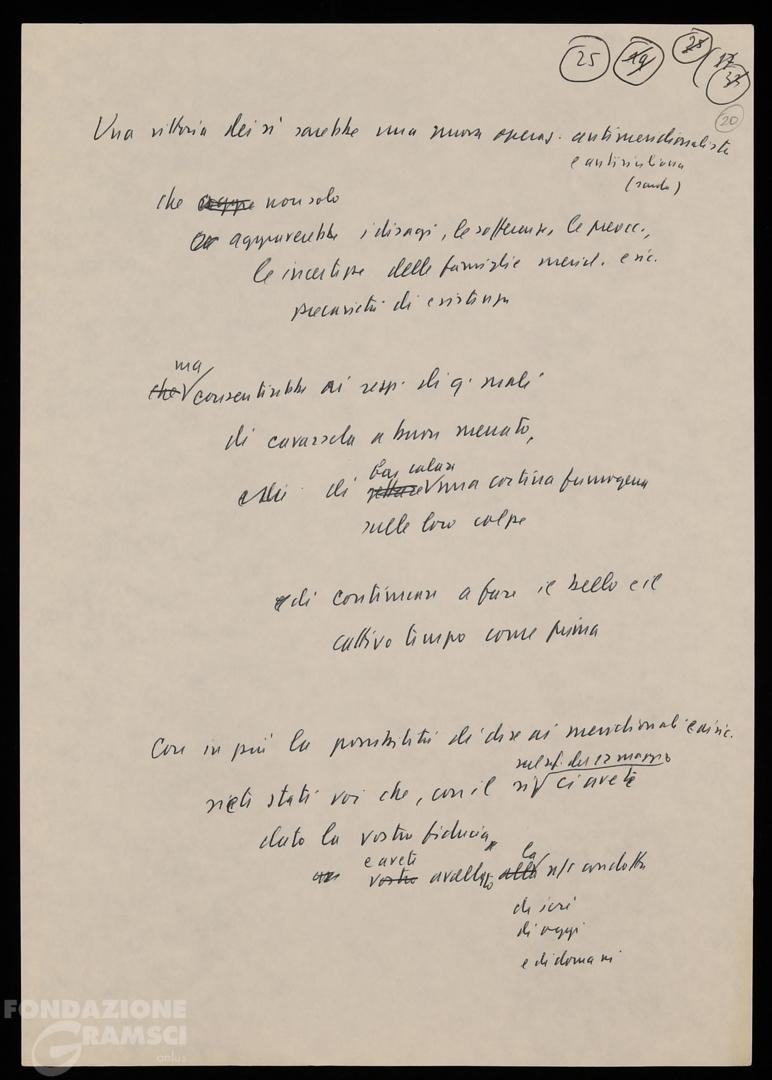 25 19 28
17
32
20
Una vittoria dei sì sarebbe una nuova operaz. antimeridionalista
e antisiciliana
(sarda)
che non solo
aggraverebbe i disagi, le sofferenze, le preocc.,
le incertezze delle famiglie merid. e sic.
precarietà di esistenza
ma
che consentirebbe ai resp. di q. mali
di cavarsela a buon mercato,
far calare
di una cortina fumogena
sulle loro colpe
e di continuare a fare il bello e il
cattivo tempo come prima
Con in più la possibilità di dire ai meridionali e ai sic.
sul ref. del 12 maggio
siete stati voi che, con il sì ci avete
dato la vostra fiducia
e avete la
vostro avallato alla n/s condotta
di ieri
di oggi
e di domani
FONDAZIONE
GRAMSCI
onlus